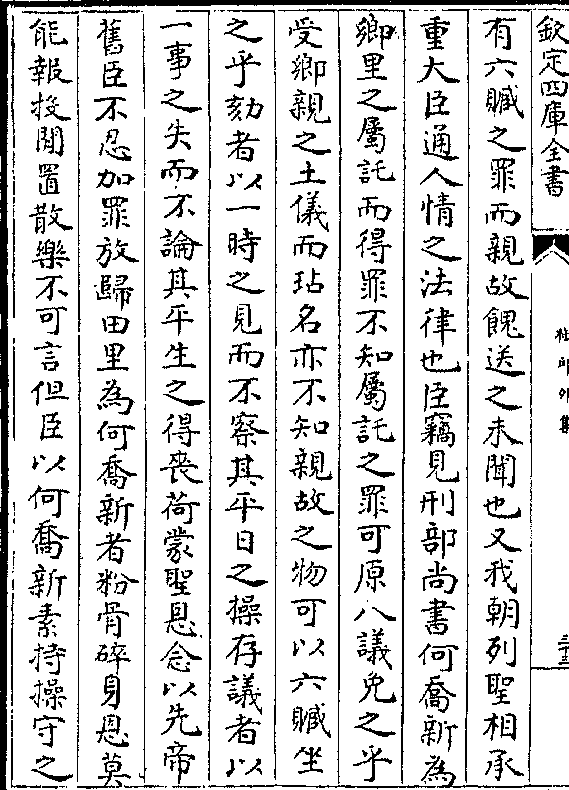 欽定四庫全書
椒邱外集
三十三
有六贓之罪而親故餽送之未聞也又我朝列聖相承
重大臣通人情之法律也臣竊見刑部尚書何喬新為
鄉里之屬託而得罪不知屬託之罪可原八議免之乎
受鄉親之土儀而玷名亦不知親故之物可以六贓坐
之乎劾者以一時之見而不察其平日之操存議者以
一事之失而不論其平生之得喪荷蒙聖恩念以先帝
舊臣不忍加罪放歸田里為何喬新者粉骨碎身恩莫
能報投閒置散樂不可言但臣以何喬新素持操守之